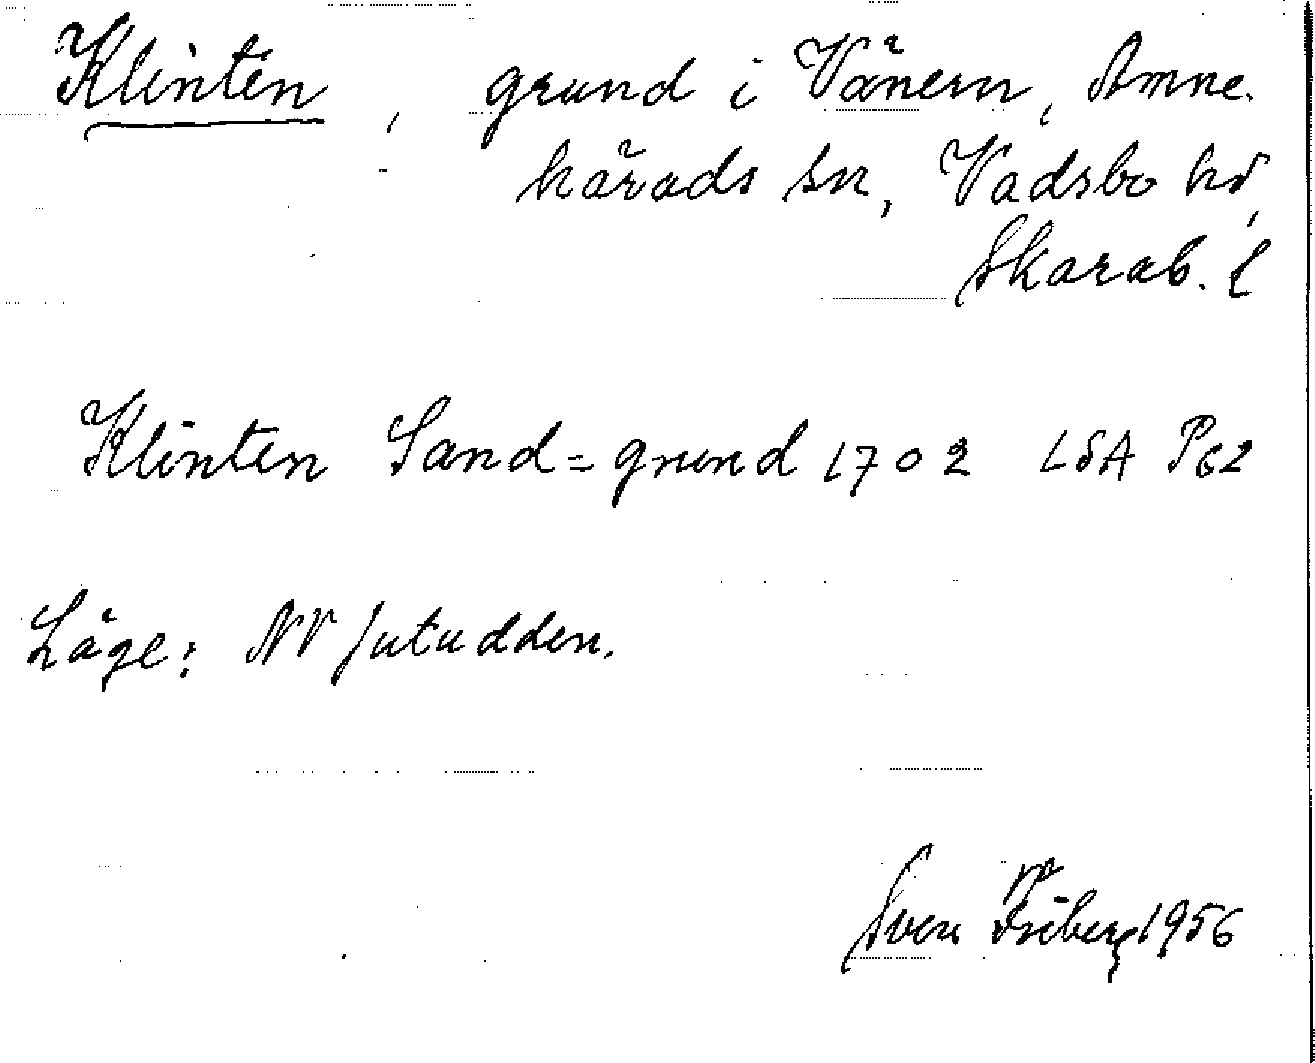 Klinten, grund i Vänern, Amne-
härads sn, Vadsbo hd,
Skarab. l
Klinten Sand=grund 1702 LSA P62
Läge: NV Jutudden.
Sven Friberg 1956